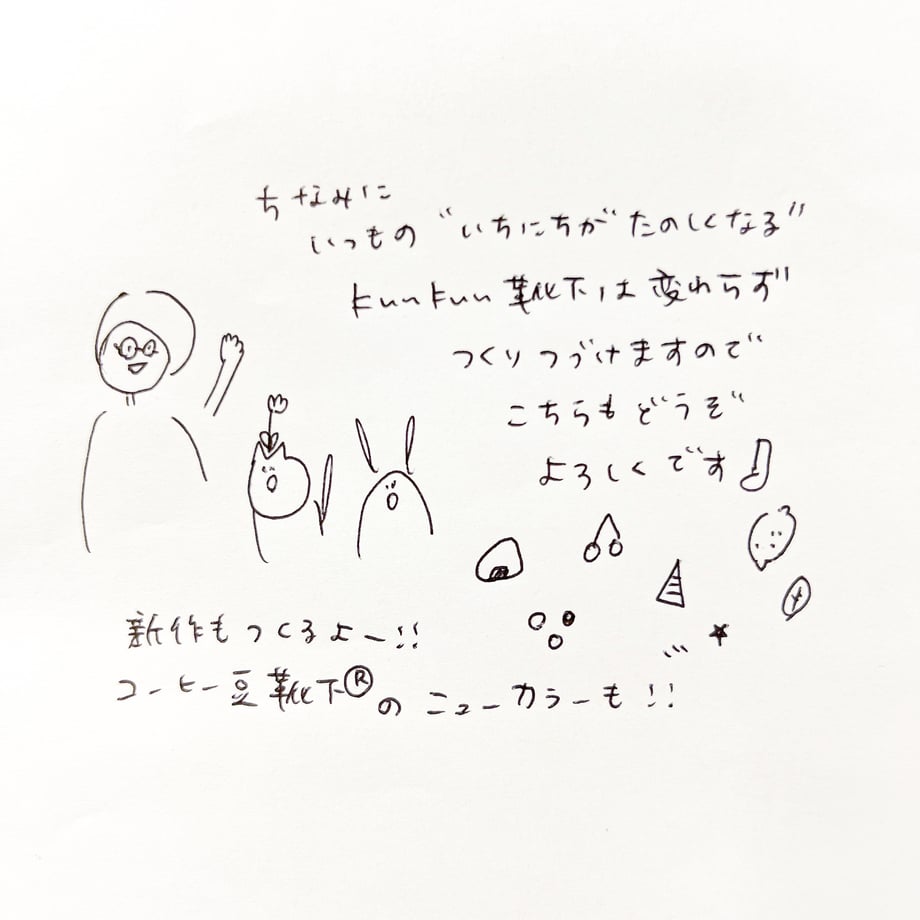 ちなみに
いつもの"いちにちがたのしくなる"
kuukuu靴下は変わらず
つくりつづけますので
こちらもどうぞ
よろしくです♪
新作もつくるよー!!
コーヒー豆靴下®のニューカラーも!!